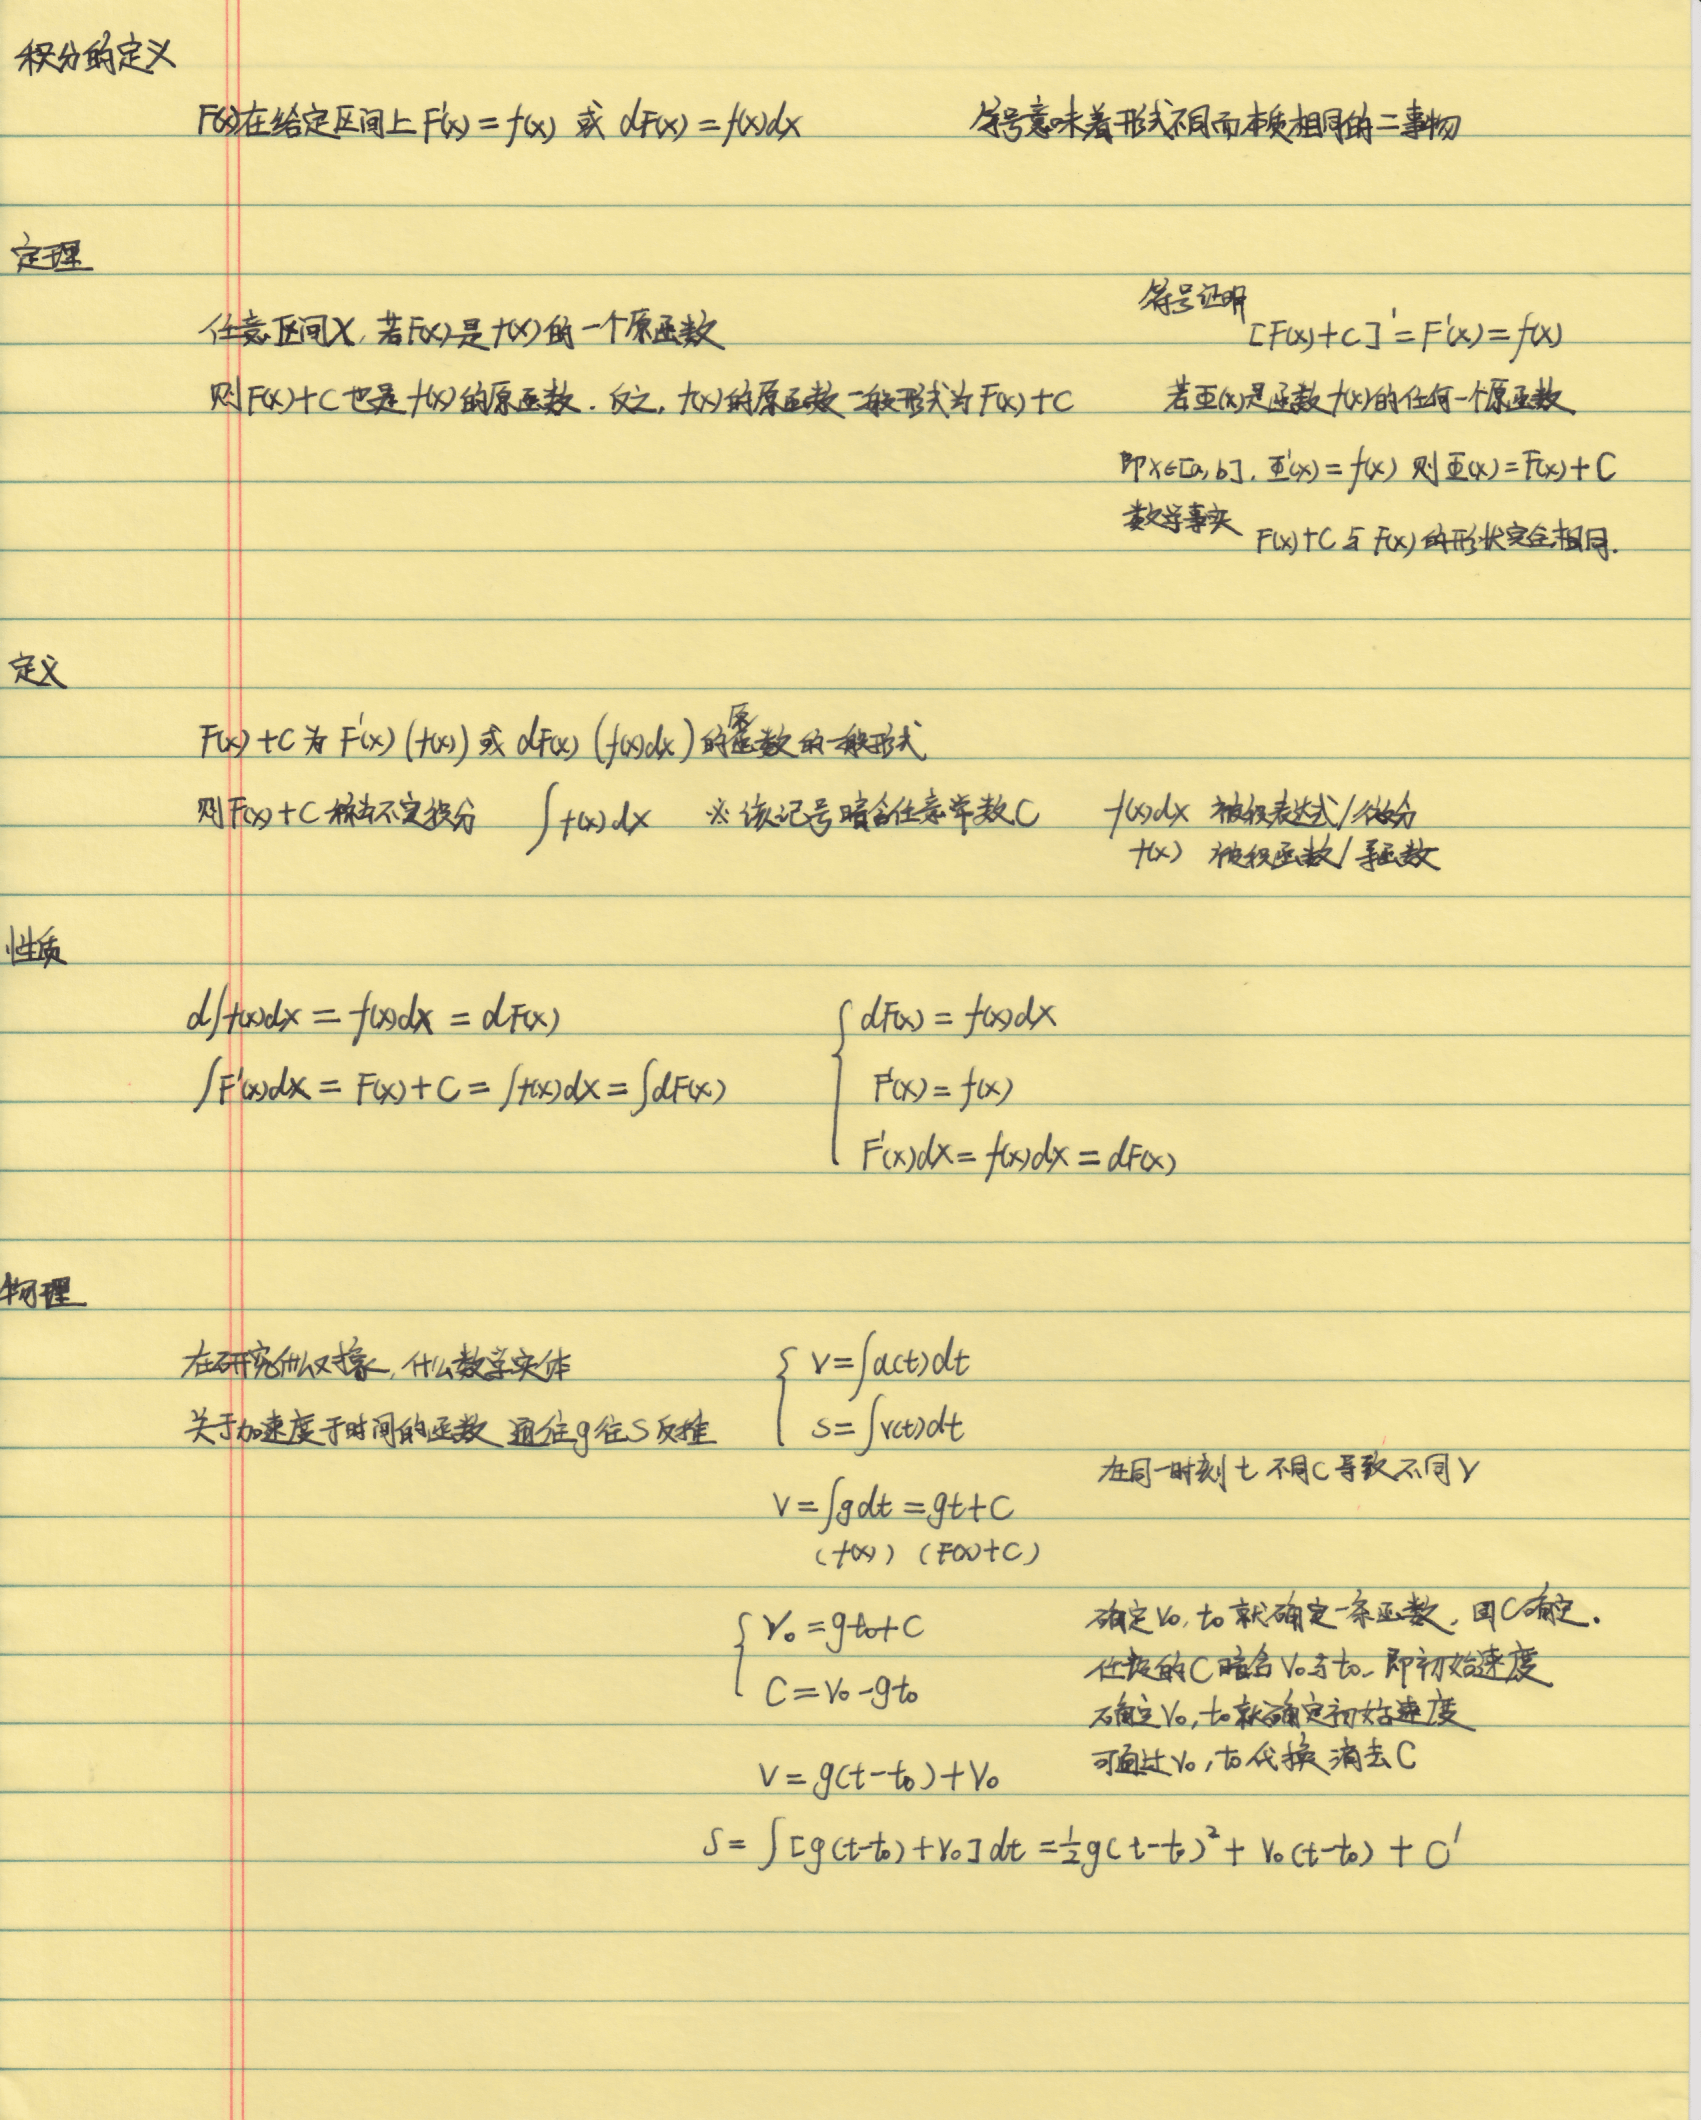 积分的定义
F(x)在给定区间上 F'(x) = f(x) 或 dF(x) = f(x)dx
符号意味着形式不同而本质相同的二事物
定理
任意区间X,若F(x)是f(x)的一个原函数
则F(x)+C也是f(x)的原函数.反之,f(x)的原函数一般形式为F(x)+C
符号证明
[F(x)+C]' = F'(x) = f(x)
若Φ(x)是函数f(x)的任何一个原函数
即x∈[a,b], Φ'(x) = f(x) 则Φ(x) = F(x)+C
数学事实
F(x)+C与F(x)的形状完全相同.
定义
F(x)+C为F'(x) (f(x)) 或 dF(x) (f(x)dx) 的原函数的一般形式
则F(x)+C称为不定积分 ∫f(x)dx ※该记号暗含任意常数C
f(x)dx 被积表达式/微分
f(x) 被积函数/导函数
性质
d∫f(x)dx = f(x)dx = dF(x)
∫F'(x)dx = F(x)+C = ∫f(x)dx = ∫dF(x)
dF(x) = f(x)dx
F'(x) = f(x)
F'(x)dx = f(x)dx = dF(x)
物理
在研究什么对象,什么数学实体
关于加速度于时间的函数 通往g往S反推
v = ∫a(t)dt
s = ∫v(t)dt
在同一时刻t 不同C导致不同v
v = ∫gdt = gt+C
(f(x)) (F(x)+C)
v₀ = gt₀+C
C = v₀-gt₀
确定v₀,t₀就确定一条函数,因C确定.
任意的C暗含v₀与t₀,即初始速度
确定v₀,t₀就确定初始速度
可通过v₀,t₀代换消去C
v = g(t-t₀)+v₀
s = ∫[g(t-t₀)+v₀]dt = ½g(t-t₀)² + v₀(t-t₀) + C'